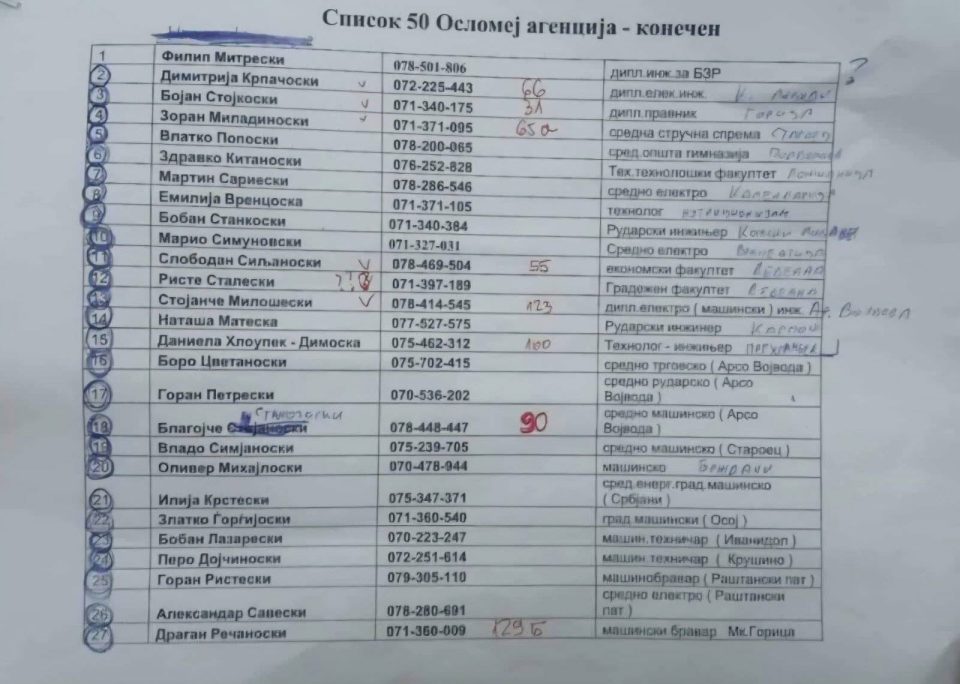 Список 50 Осломеј агенција - конечен
1 Филип Митрески 078-501-806 дипл.инж.за БЗР ?
2 Димитрија Крпачоски 072-225-443 66 дипл.елек.инж.
3 Бојан Стојкоски 071-340-175 31 дипл.правник
4 Зоран Миладиноски 071-371-095 65а средна стручна спрема
5 Влатко Попоски 078-200-065 сред.општа гимназија
6 Здравко Китаноски 076-252-828 Тех.технолошки факултет
7 Мартин Сариески 078-286-546 средно електро
8 Емилија Вренцоска 071-371-105 технолог
9 Бобан Станкоски 071-340-384 Рударски инжињер
10 Марио Симуновски 071-327-031 Средно електро
11 Слободан Сиљаноски 078-469-504 55 економски факултет
12 Ристе Сталески ?? 071-397-189 Градежен факултет
13 Стојанче Милошески 078-414-545 123 дипл.електро ( машински ) инж.
14 Наташа Матеска 077-527-575 Рударски инжинер
15 Даниела Хлоупек - Димоска 075-462-312 100 Технолог - инжињер
16 Боро Цветаноски 075-702-415 средно трговско ( Арсо Војвода )
17 Горан Петрески 070-536-202 средно рударско ( Арсо
Војвода )
18 Благојче 078-448-447 90 средно машинско ( Арсо
Војвода )
19 Владо Симјаноски 075-239-705 средно машинско ( Староец )
20 Оливер Михајлоски 070-478-944 машинско
21 Илија Крстески 075-347-371 сред.енерг.град.машинско
( Србјани )
22 Златко Ѓорѓијоски 071-360-540 град.машински ( Осој )
23 Бобан Лазарески 070-223-247 машин.техничар ( Иванидол )
24 Перо Дојчиноски 072-251-614 машин техничар ( Крушино )
25 Горан Ристески 079-305-110 машинобравар ( Раштански пат )
26 Александар Савески 078-280-691 средно електро ( Раштански
пат )
27 Драган Речаноски 071-360-009 129Б машински бравар Мк.Горица